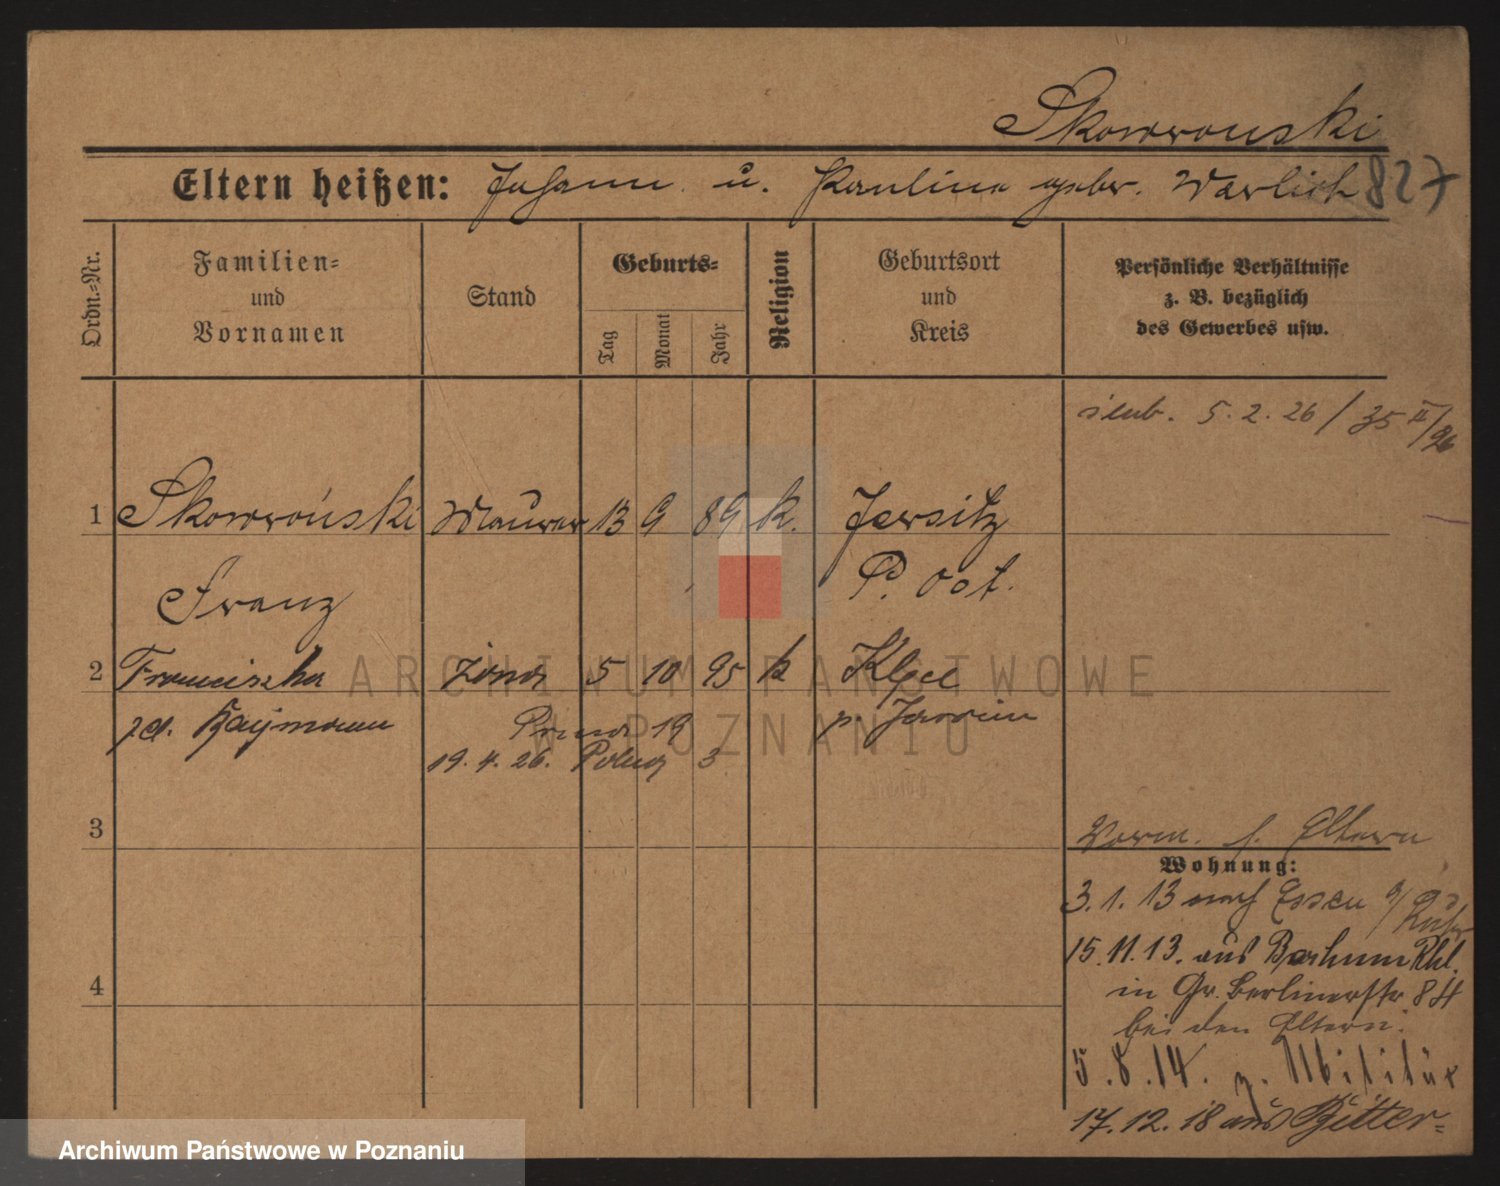 Skowronski
Eltern heißen: Johann u. Paulina geber. Warlich 827
Ordn.=Nr.
Familien=
und
Vornamen
Stand
Geburts=
Tag
Monat
Jahr
Religion
Geburtsort
und
Kreis
Persönliche Verhältnisse
z. B. bezüglich
des Gewerbes usw.
ślub. 5. 2. 26 / 35 II/26
1 Skowroński Maurer 13 9 89 k. Jersitz
Franz P. Ost.
2 Franciszka żona 5 10 95 k
zd. Kajmann p. Jarocin
19. 4. 26. 3
3
Vorm. s. Eltern
Wohnung:
3. 1. 13 auf Essen a/Ruhr
15. 11. 13. aus Rhl.
4
in Gr. Berlinerstr 84
bei den Eltern.
5. 8. 14. z. Militär
17. 12. 18 aus Bitter=
ARCHIWUM PAŃSTWOWE
W POZNANIU
Archiwum Państwowe w Poznaniu